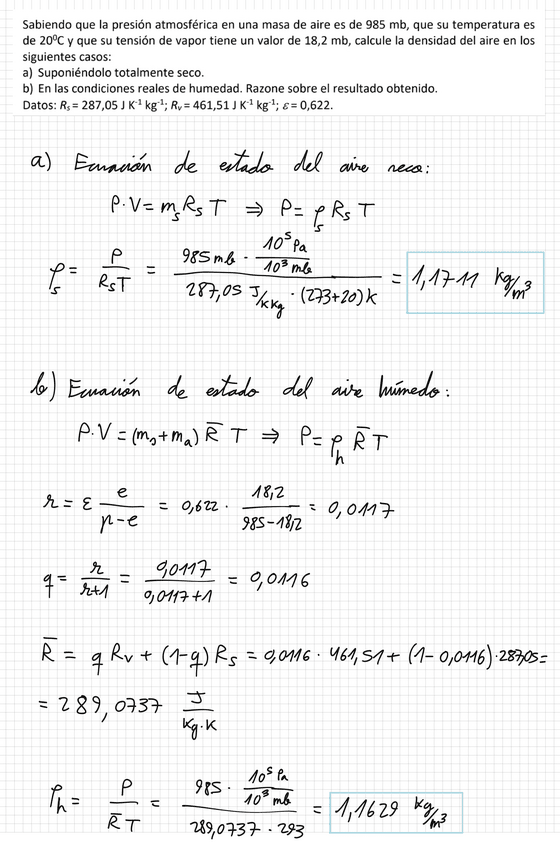 Sabiendo que la presión atmosférica en una masa de aire es de 985 mb, que su temperatura es
de 20⁰C y que su tensión de vapor tiene un valor de 18,2 mb, calcule la densidad del aire en los
siguientes casos:
a) Suponiéndolo totalmente seco.
b) En las condiciones reales de humedad. Razone sobre el resultado obtenido.
Datos: Rs = 287,05 J K⁻¹ kg⁻¹; Rv = 461,51 J K⁻¹ kg⁻¹; ε = 0,622.
a) Ecuación de estado del aire seco:
P·V = m_s R_s T ⇒ P = ρ_s R_s T
ρ_s = P / (R_s T) = (985 mb · 10⁵ Pa / 10³ mb) / (287,05 J/K kg · (273+20) K) = 1,1711 kg/m³
b) Ecuación de estado del aire húmedo:
P·V = (m_s + m_a) R̅ T ⇒ P = ρ_h R̅ T
r = ε e / (p-e) = 0,622 · 18,2 / (985-18,2) = 0,0117
q = r / (r+1) = 0,0117 / (0,0117+1) = 0,0116
R̅ = q R_v + (1-q) R_s = 0,0116 · 461,51 + (1-0,0116)·287,05 =
= 289,0737 J / (kg·K)
ρ_h = P / (R̅ T) = (985 · 10⁵ Pa / 10³ mb) / (289,0737 · 293) = 1,1629 kg/m³